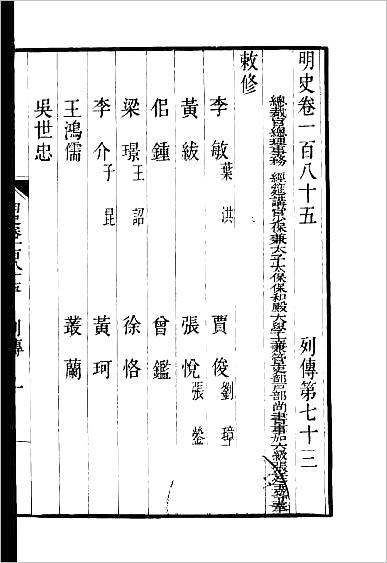 明史卷一百八十五 列傳第七十三
總裁官總理事務 經筵講官少保兼太子太保保和殿大學士兼管吏部戶部尚書事加六級張廷玉奉
敕修
李敏 葉淇 賈俊 劉璋
黃紱 張悅 張鎣
侶鍾 曾鑑
梁璟 王詔 徐恪
李介 子昆 黃珂
王鴻儒 叢蘭
吳世忠
明史卷一百八十五 列傳 一